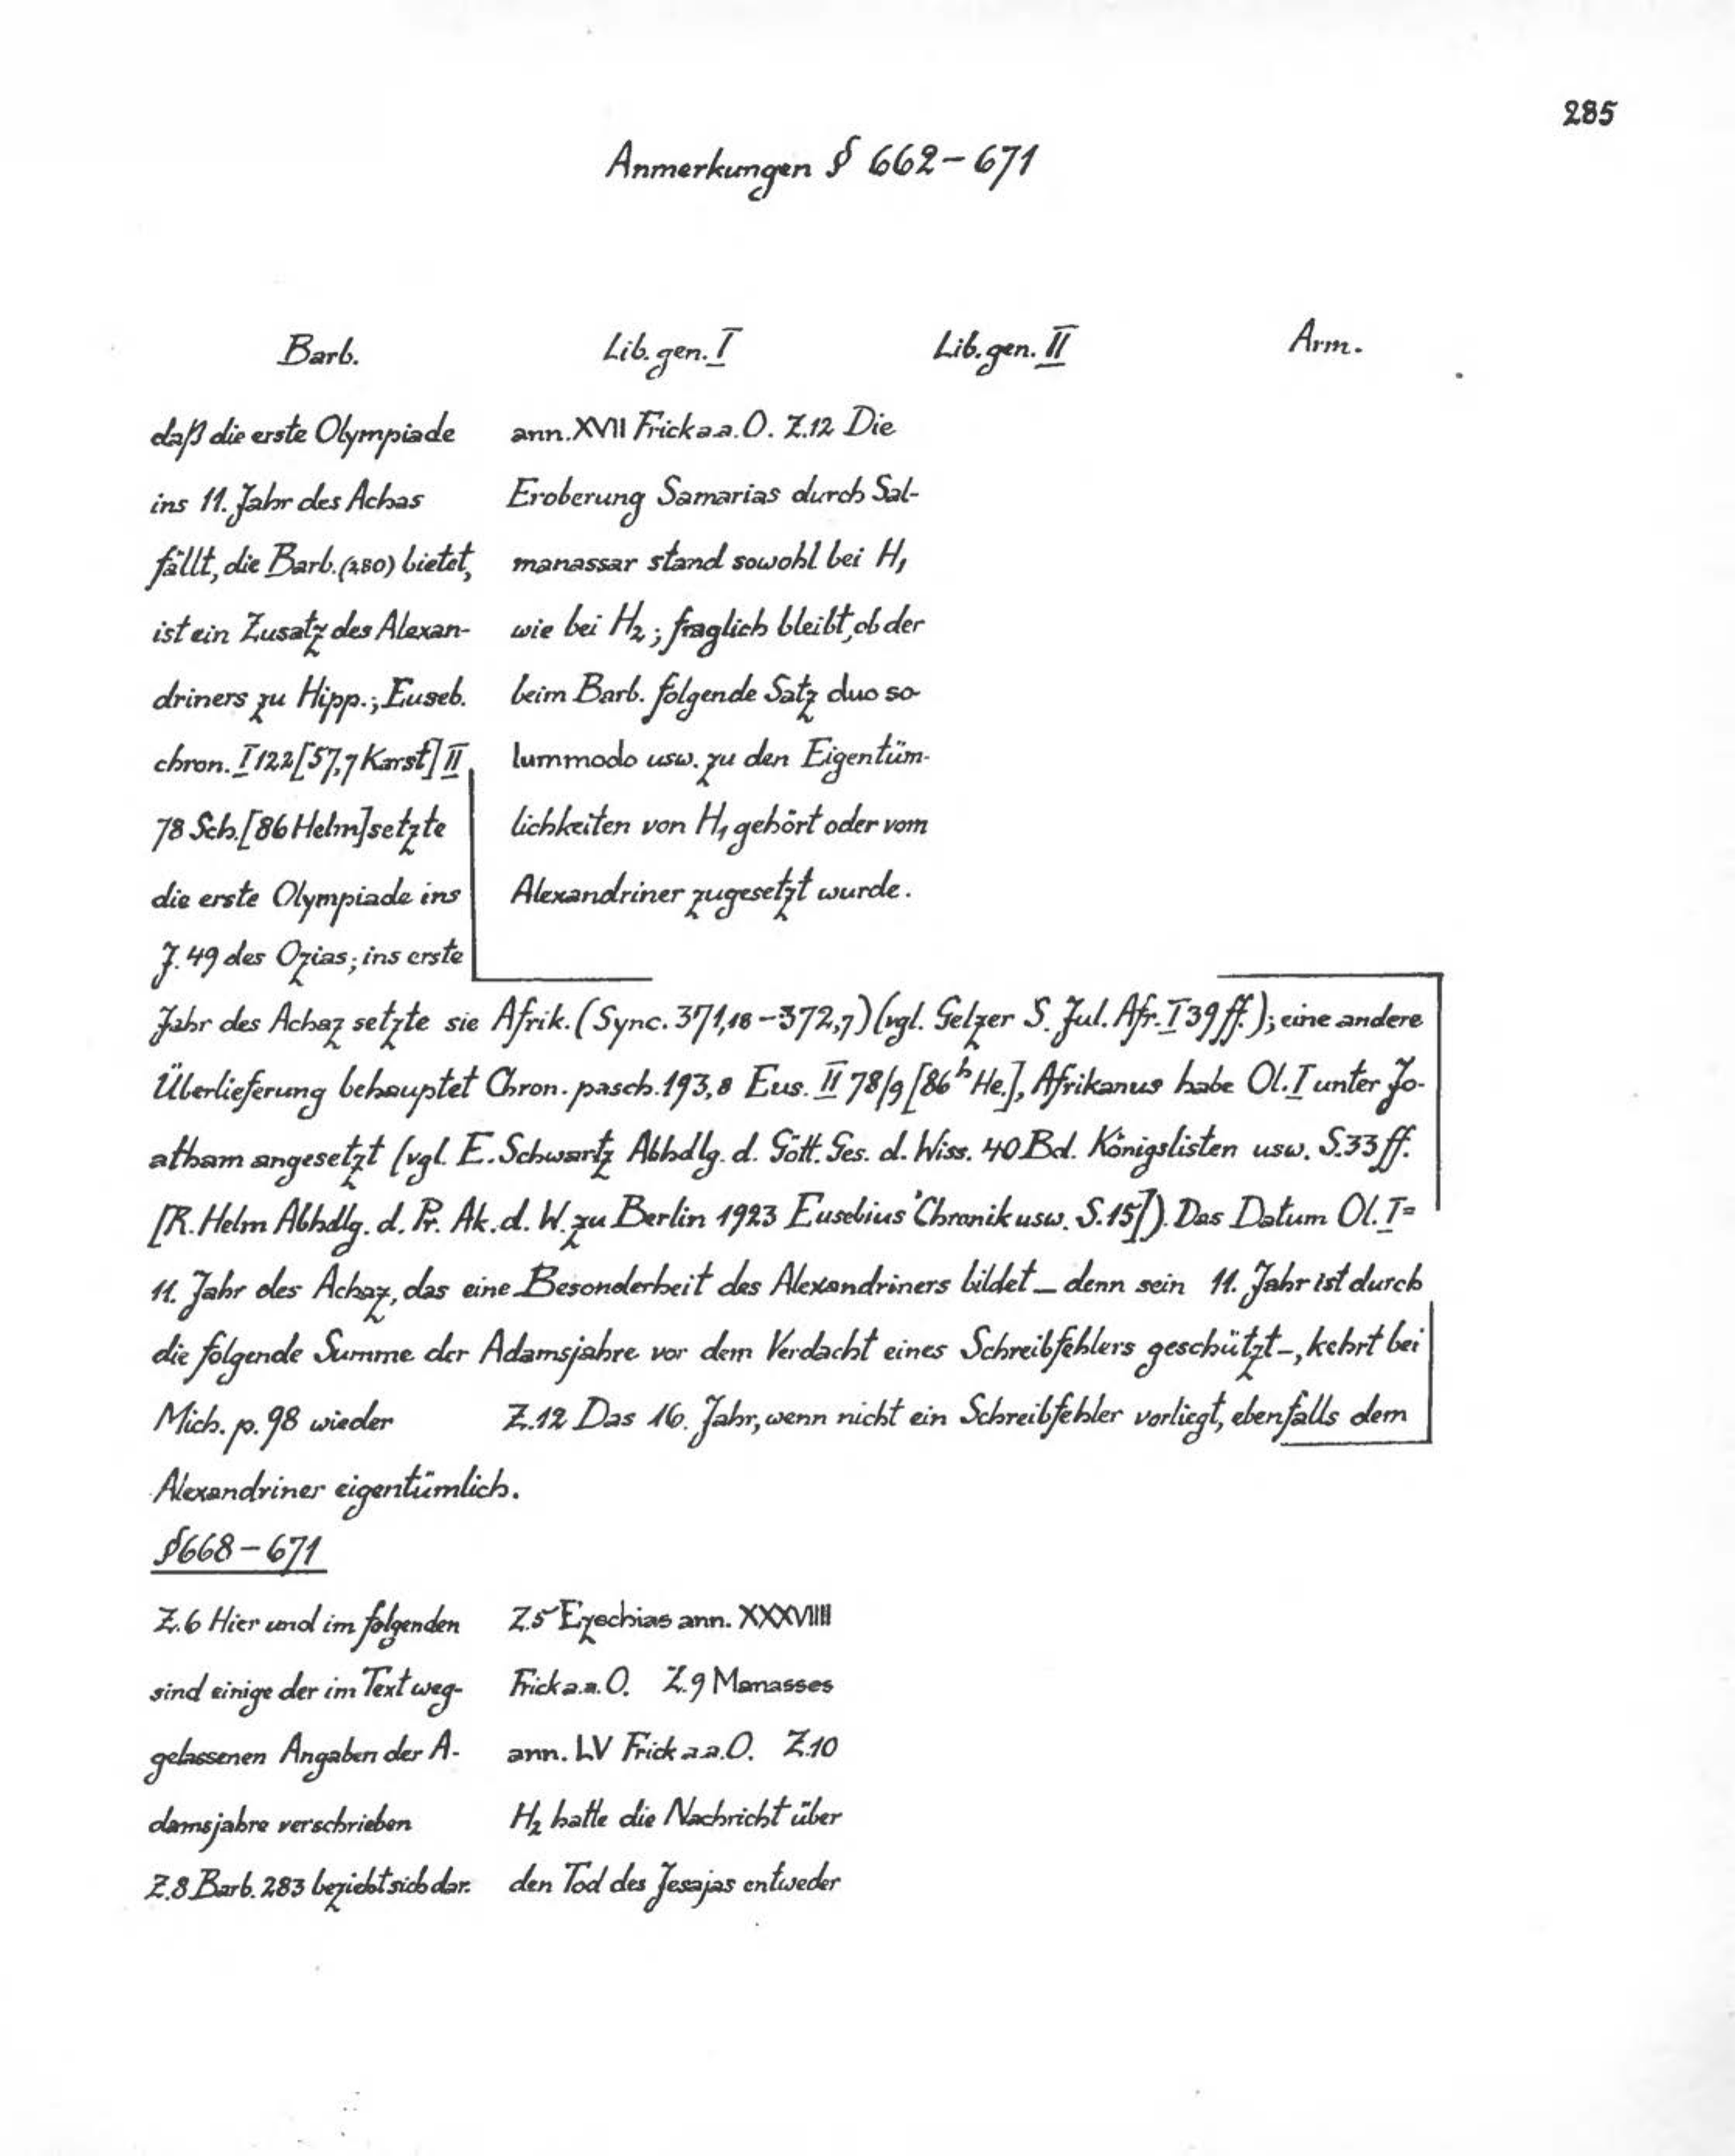 285
Anmerkungen § 662-671
Barb.
daß die erste Olympiade
ins 11. Jahr des Achas
fällt, die Barb. (280) bietet,
ist ein Zusatz des Alexan-
driners zu Hipp.; Euseb.
chron. I 122 [57,7 Karst] II
78 Sch. [86 Helm] setzte
die erste Olympiade ins
J. 49 des Ozias; ins erste
Lib. gen. I
ann. XVII Frick a.a.O. Z.12 Die
Eroberung Samarias durch Sal-
manassar stand sowohl bei H₁
wie bei H₂; fraglich bleibt, ob der
beim Barb. folgende Satz duo so-
lummodo usw. zu den Eigentüm-
lichkeiten von H₁ gehört oder vom
Alexandriner zugesetzt wurde.
Lib. gen. II
Arm.
Jahr des Achaz setzte sie Afrik. (Sync. 371,18-372,7) (vgl. Gelzer S. Jul. Afr. I 39 ff.); eine andere
Überlieferung behauptet Chron. pasch. 193,8 Eus. II 78/9 [86ʰ He.], Afrikanus habe Ol. I unter Jo-
atham angesetzt (vgl. E. Schwartz Abhdlg. d. Gött. Ges. d. Wiss. 40 Bd. Königslisten usw. S.33 ff.
[R. Helm Abhdlg. d. Pr. Ak. d. W. zu Berlin 1923 Eusebius' Chronik usw. S.15]). Das Datum Ol. I =
11. Jahr des Achaz, das eine Besonderheit des Alexandriners bildet – denn sein 11. Jahr ist durch
die folgende Summe der Adamsjahre vor dem Verdacht eines Schreibfehlers geschützt –, kehrt bei
Mich. p. 98 wieder Z.12 Das 16. Jahr, wenn nicht ein Schreibfehler vorliegt, ebenfalls dem
Alexandriner eigentümlich.
§668-671
Z.6 Hier und im folgenden
sind einige der im Text weg-
gelassenen Angaben der A-
damsjahre verschrieben
Z.8 Barb. 283 bezieht sich dar-
Z.5 Ezechias ann. XXXVIIII
Frick a.a.O. Z.9 Manasses
ann. LV Frick a.a.O. Z.10
H₂ hatte die Nachricht über
den Tod des Jesajas entweder